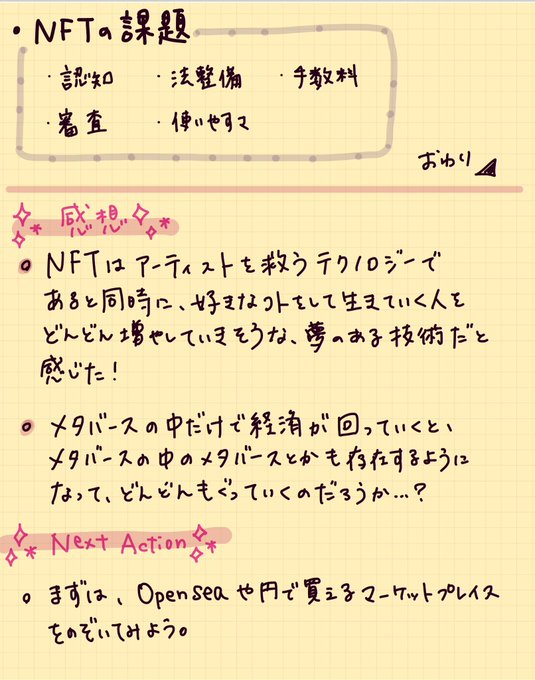 • NFTの課題
・認知 ・法整備 ・手数料
・審査 ・使いやすさ
おわり
感想
NFTはアーティストを救うテクノロジーで
あると同時に、好きなコトをして生きていく人を
どんどん増やしていきそうな、夢のある技術だと
感じた!
メタバースの中だけで経済が回っていくと、
メタバースの中のメタバースとかも存在するように
なって、どんどんもぐっていくのだろうか…?
Next Action
まずは、Openseaや円で買えるマーケットプレイス
をのぞいてみよう。